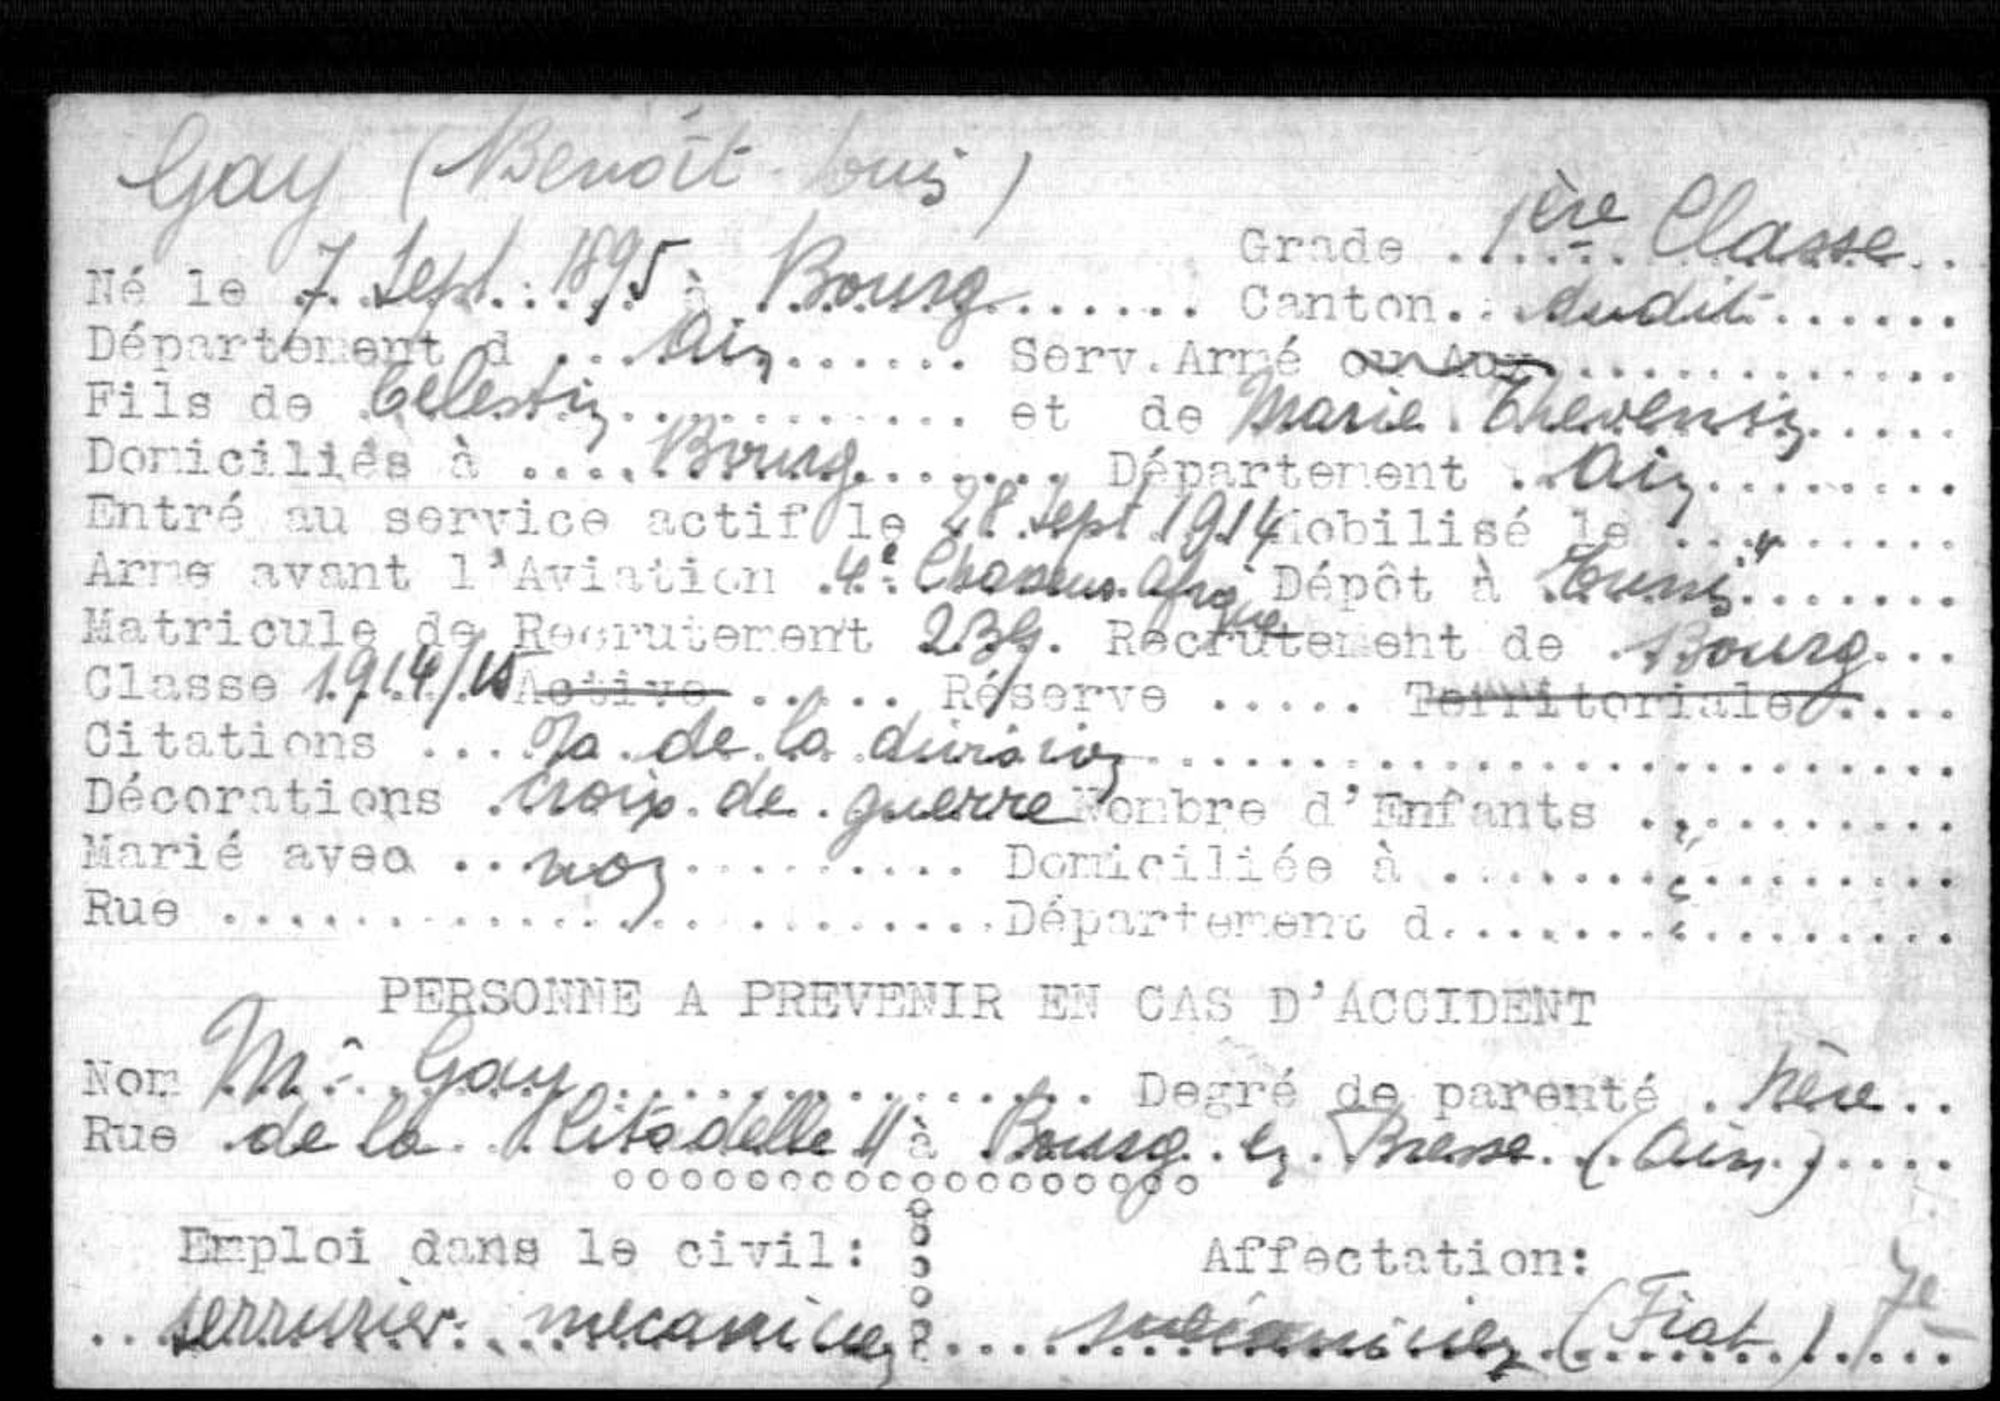 Gay (Benoît-Louis)
Grade 1ère Classe
Né le 7 Sept. 1895 à Bourg Canton dudit
Département d Ain Serv. Armé ou Aux
Fils de Célestin et de Marie Thevenin
Domiciliés à Bourg Département Ain
Entré au service actif le 28 Sept 1914 Mobilisé le "
Arme avant l'Aviation 4e Chasseurs Afrique Dépôt à Tunis
Matricule de Recrutement 239 Recrutement de Bourg
Classe 1914/15 Active Réserve Territoriale
Citations de la division
Décorations Croix de guerre Nombre d'Enfants
Marié avec non Domiciliée à
Rue Département d
PERSONNE A PREVENIR EN CAS D'ACCIDENT
Nom Mr Gay Degré de parenté
Rue de la Citadelle 11 à Bourg en Bresse (Ain)
Emploi dans le civil: Affectation:
serrurier mecanicien mécanicien (Fiat) 7e